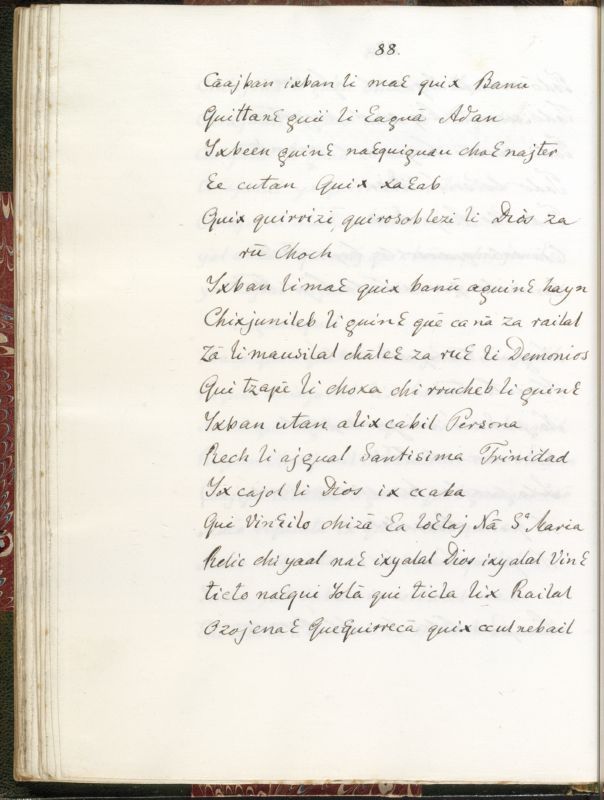 88.
Cāajban ixban li maɛ quix Banu
Quittanɛ çuii li Eaguā Adan
Yxbeen çuinɛ naɛquiguau choɛ najter
Ee cutan Quix xaɛab
Quix quirrizi, quirosoblezi li Dios za
rū Choch
Yxban li maɛ quix banū açuinɛ hayn
Chixjunileb li çuinɛ quē ca nā za railal
Zā li mausilal chāleɛ za ruɛ li Demonios
Qui tzapē li choxa chi rrucheb li çuinɛ
Yxban utan a lix cabil Persona
Rech li ajçual Santisima Trinidad
Yx cajol li Dios ix cxaba
Qui Vinɛilo chizā Ea loɛlaj Nā Sª Maria
Relic chi yaal naɛ ixyalal Dios ixyalal Vinɛ
ticto naɛqui Yotā qui ticta lix Railal
Ozojenaɛ Queɛquirrecā quix cxutnebail